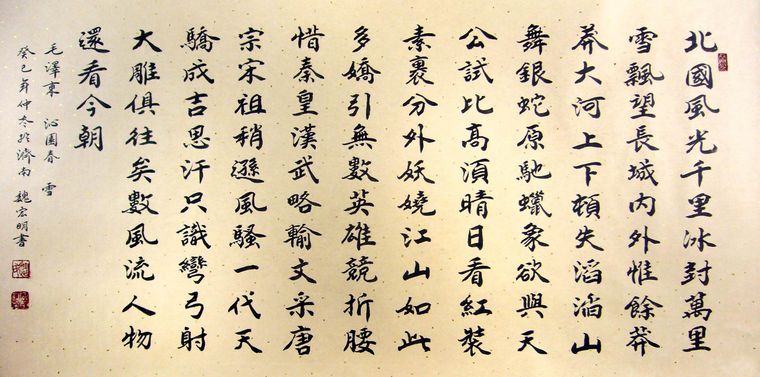 北國風光千里冰封萬里
雪飄望長城內外惟餘莽
莽大河上下頓失滔滔山
舞銀蛇原馳蠟象欲與天
公試比高須晴日看紅裝
素裹分外妖嬈江山如此
多嬌引無數英雄競折腰
惜秦皇漢武略輸文采唐
宗宋祖稍遜風騷一代天
驕成吉思汗只識彎弓射
大雕俱往矣數風流人物
還看今朝
毛澤東 沁園春 雪
癸巳年仲冬於濟南 魏宏明書